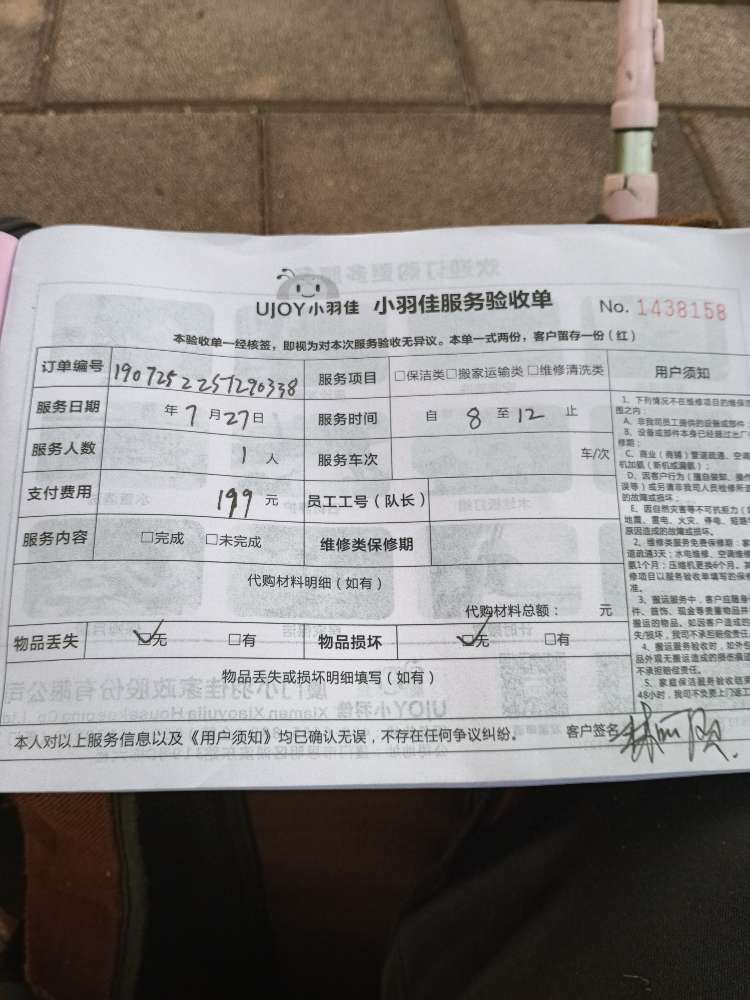 UJOY小羽佳 小羽佳服务验收单 No. 1438158
本验收单一经核签，即视为对本次服务验收无异议。本单一式两份，客户留存一份（红）
订单编号 1907252257290338 服务项目 □保洁类□搬家运输类□维修清洗类 用户须知
服务日期 年7月27日 服务时间 自 8 至 12 止
服务人数 1 人 服务车次 车/次
支付费用 199 元 员工工号（队长）
服务内容 □完成 □未完成 维修类保修期
代购材料明细（如有）
代购材料总额： 元
物品丢失 ☑无 □有 物品损坏 ☑无 □有
物品丢失或损坏明细填写（如有）
本人对以上服务信息以及《用户须知》均已确认无误，不存在任何争议纠纷。 客户签名
1、下列情况不在维修项目的维保范
围之内：
A、非我司员工提供的设备或部件；
B、设备或部件本身已经超过出厂
修期；
C、商业（商铺）管道疏通、空调
机加氨（新机或漏氨）；
D、因客户行为（擅自装卸、操作
误等）或另请非我司人员检修所造
的故障或损坏；
E、因自然灾害等不可抗力（
地震、雷电、火灾、停电、短路
原因造成的故障或损坏。
2、维修类服务免费保修期：家
道疏通3天；水电维修、空调维
氨1个月；压缩机更换6个月。其
修项目以服务验收单填写的保修
准。
3、搬运服务中，客户应随身
件、首饰、现金等贵重物品并
搬运的物品。如因客户造成的
失/损坏，我司不承担赔偿责任
4、搬运服务验收时，如外包
品外观无搬运造成的损伤痕迹
不承担赔偿责任。
5、家庭保洁服务验收结束
48小时，我司不免费上门返工